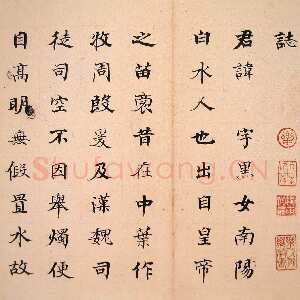 誌
君諱 字黑女南陽
白水人也出自皇帝
之苗裔昔在中葉作
牧周殷爰及漢魏司
徒司空不因舉燭便
自高明無假置水故
Shufawang.CN